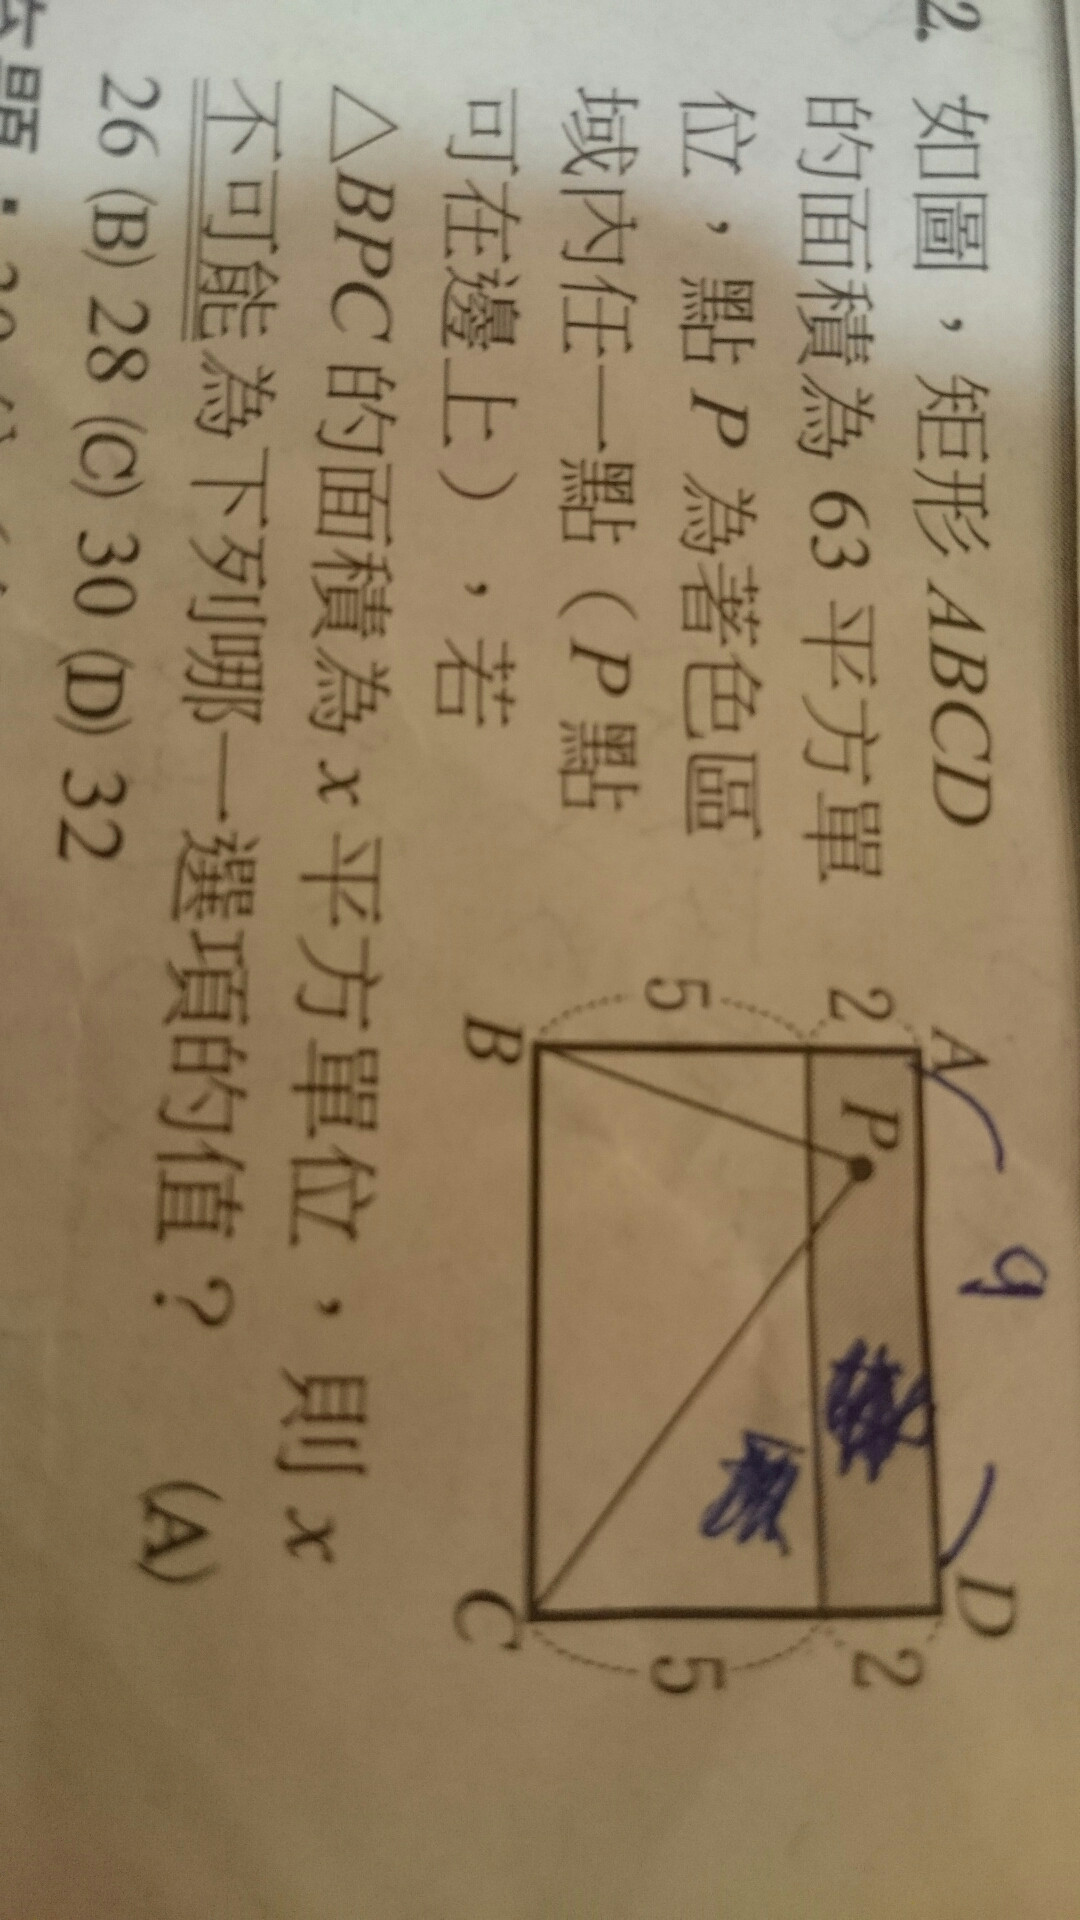 2. 如圖，矩形 ABCD
的面積為 63 平方單
位，點 P 為著色區
域內任一點（P 點
可在邊上），若
△BPC 的面積為 x 平方單位，則 x
不可能為下列哪一選項的值？ (A)
26 (B) 28 (C) 30 (D) 32
A
9
D
2
P
2
5
5
B
C